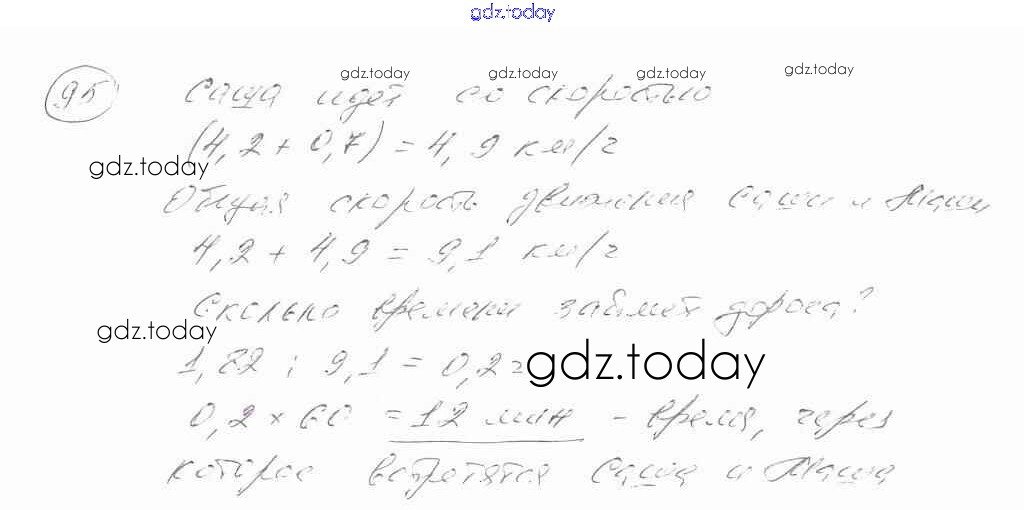 gdz.today
gdz.today gdz.today gdz.today gdz.today
95 Саша идет со скоростью
(4,2 + 0,7) = 4,9 км/ч
gdz.today
Общая скорость движения Саши и Маши
4,2 + 4,9 = 9,1 км/ч
Сколько времени займет дорога?
gdz.today
1,82 : 9,1 = 0,2 ч
gdz.today
0,2 × 60 = 12 мин - время, через
которое встретятся Саша и Маша